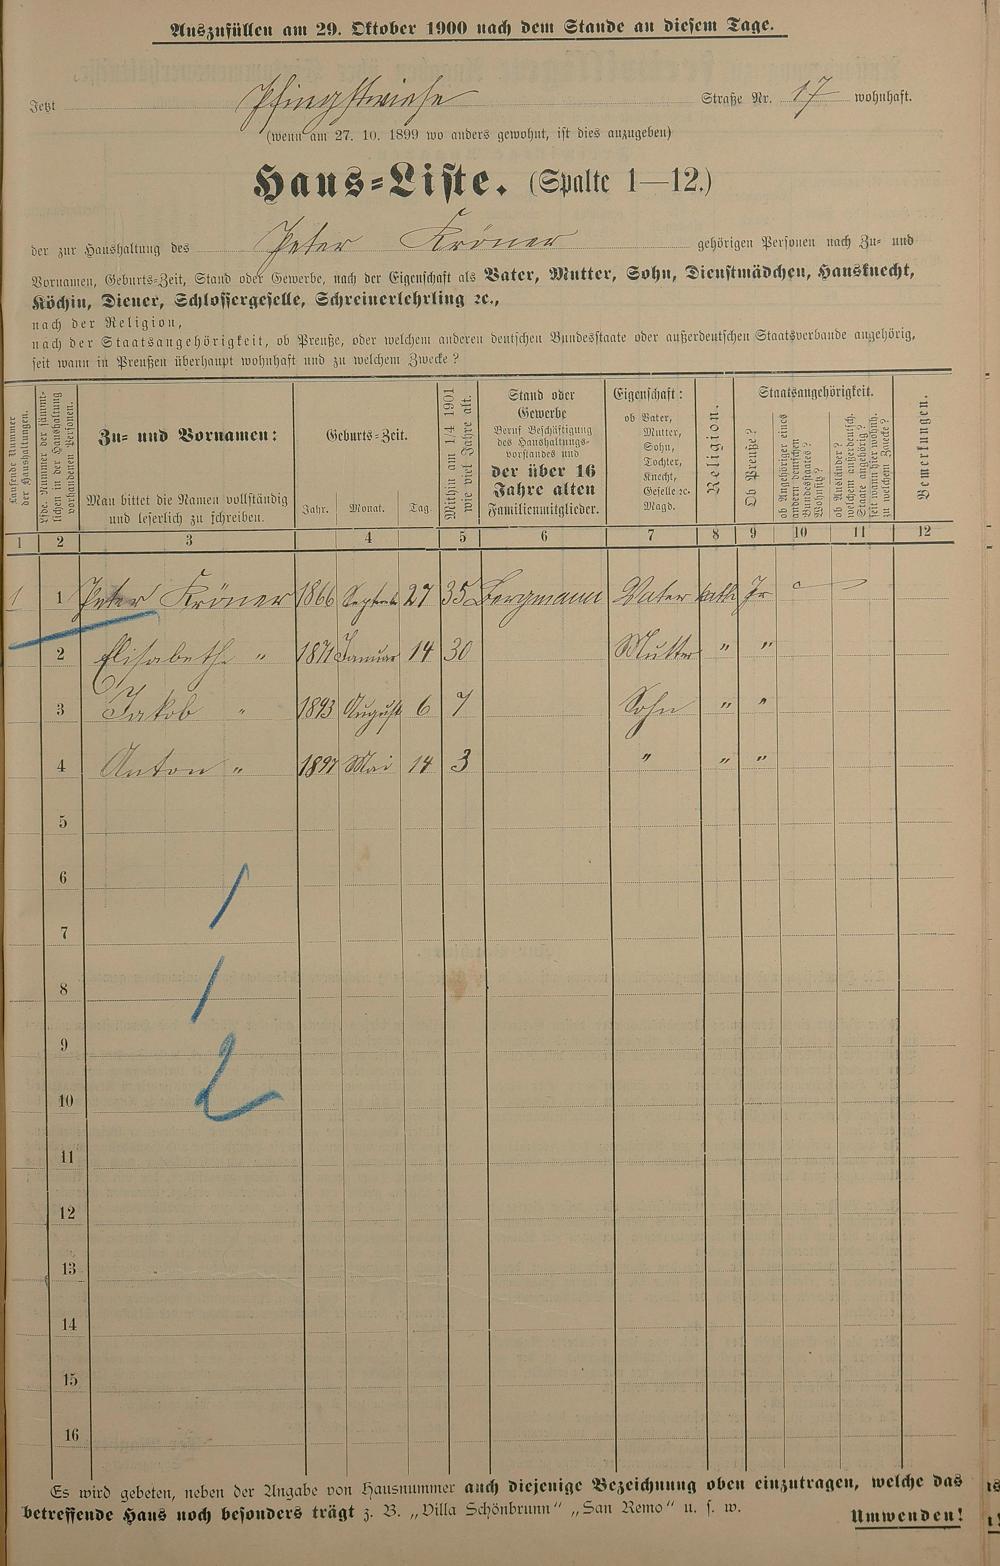 Auszufüllen am 29. Oktober 1900 nach dem Stande an diesem Tage.
Jetzt Pfingstwiese Straße Nr. 17 wohnhaft.
(wenn am 27. 10. 1899 wo anders gewohnt, ist dies anzugeben)
Haus=Liste. (Spalte 1—12.)
der zur Haushaltung des Peter Kröner gehörigen Personen nach Zu= und
Vornamen, Geburts=Zeit, Stand oder Gewerbe, nach der Eigenschaft als Vater, Mutter, Sohn, Dienstmädchen, Hausknecht,
Köchin, Diener, Schlossergeselle, Schreinerlehrling ꝛc.,
nach der Religion,
nach der Staatsangehörigkeit, ob Preuße, oder welchem anderen deutschen Bundesstaate oder außerdeutschen Staatsverbande angehörig,
seit wann in Preußen überhaupt wohnhaft und zu welchem Zwecke?
Laufende Nummer
der Haushaltungen.
Lfde. Nummer der sämmt-
lichen in der Haushaltung
vorhandenen Personen.
Zu= und Vornamen:
Man bittet die Namen vollständig
und leserlich zu schreiben.
Geburts=Zeit.
Jahr. Monat. Tag.
Mithin am 1/4 1901
wie viel Jahre alt.
Stand oder
Gewerbe
Beruf Beschäftigung
des Haushaltungs-
vorstandes und
der über 16
Jahre alten
Familienmitglieder.
Eigenschaft:
ob Vater,
Mutter,
Sohn,
Tochter,
Knecht,
Geselle ꝛc.
Magd.
Religion.
Staatsangehörigkeit.
Ob Preuße?
ob Angehöriger eines
andern deutschen
Bundesstaates?
Wohnsitz?
ob Ausländer?
welchem außerdeutsch.
Staate angehörig?
seit wann hier wohnh.
zu welchem Zwecke?
Bemerkungen.
1 2 3 4 5 6 7 8 9 10 11 12
1 1 Peter Kröner 1866 Septemb 27 35 Bergmann Vater kath. Pr
2 Elisabethe " 1871 Januar 14 30 Mutter " "
3 Jakob " 1893 August 6 7 Sohn " "
4 Anton " 1897 Mai 14 3 " " "
5
6
1
7
8
1
9
2
10
11
12
13
14
15
16
Es wird gebeten, neben der Angabe von Hausnummer auch diejenige Bezeichnung oben einzutragen, welche das
betreffende Haus noch besonders trägt z. B. „Villa Schönbrunn" „San Remo" u. s. w.
Umwenden!